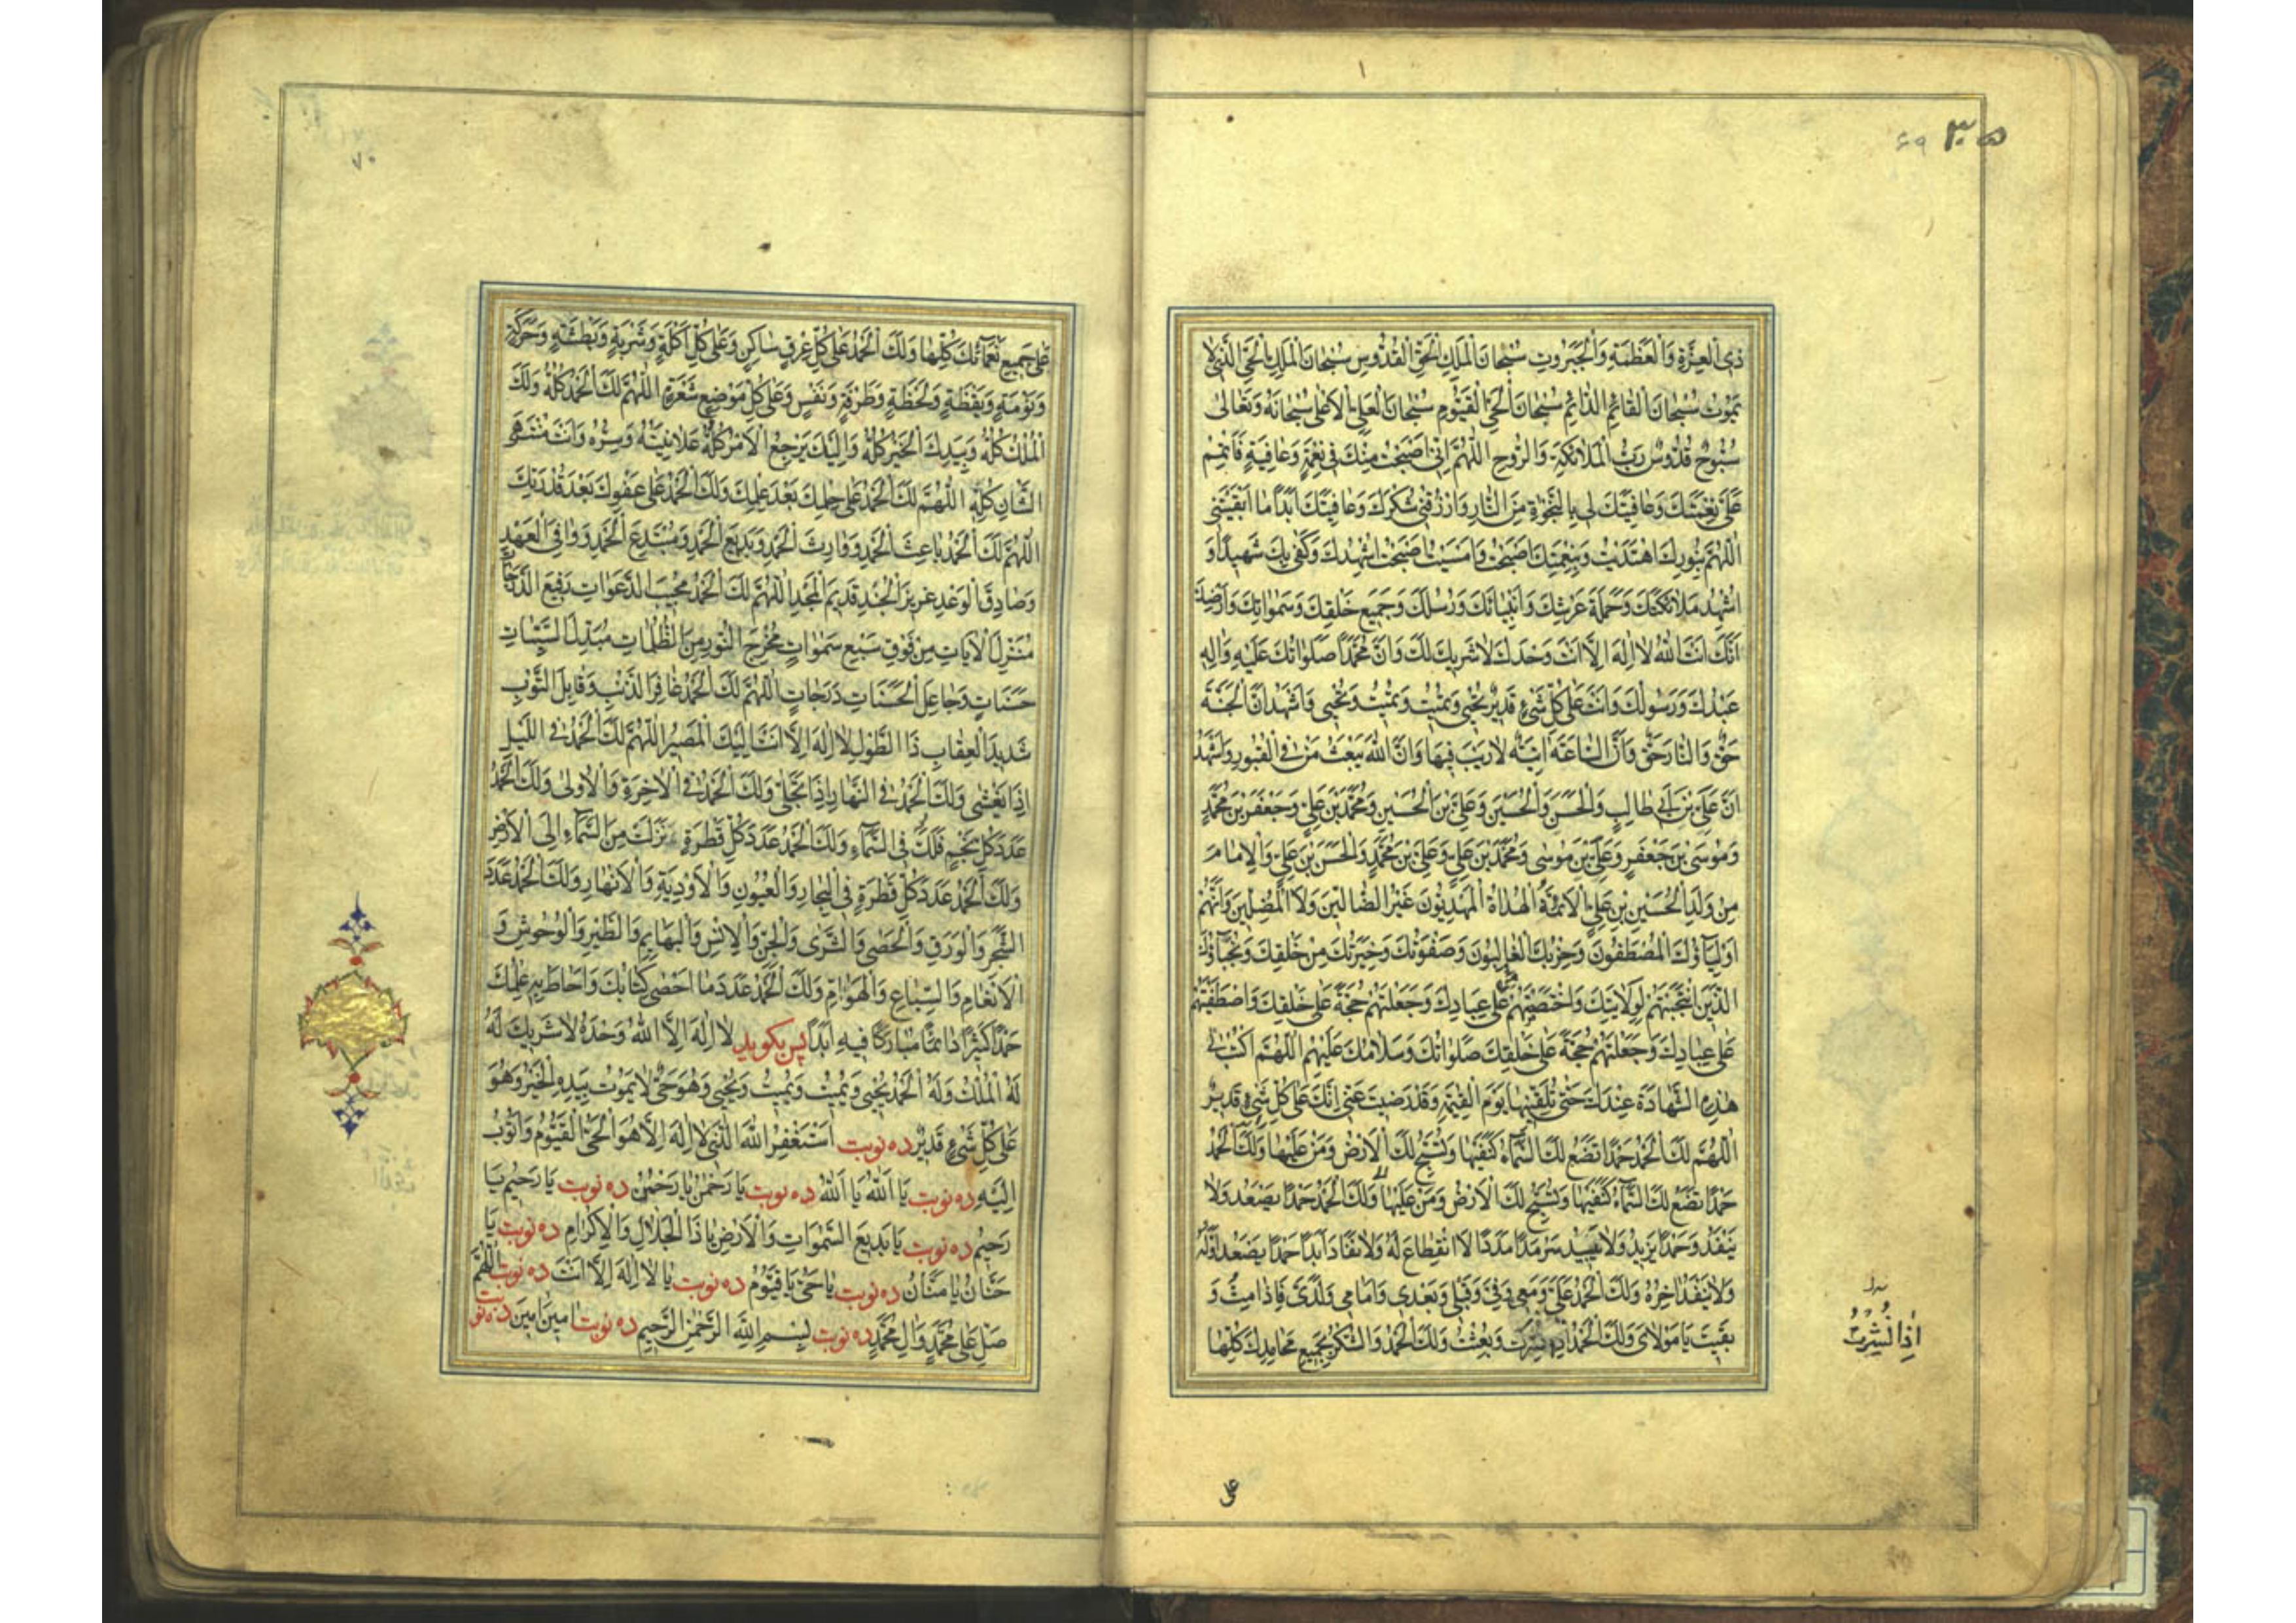 ۳۵ ۶۹
ذِی الْعِزَّةِ وَالْعَظَمَةِ وَالْجَبَرُوتِ سُبْحَانَ الْمَلِكِ الْحَقِّ الْقُدُّوسِ سُبْحَانَ الْمَلِكِ الْحَیِّ الَّذِی لَا
یَمُوتُ سُبْحَانَ الْقَائِمِ الدَّائِمِ سُبْحَانَ الْحَیِّ الْقَیُّومِ سُبْحَانَ الْعَلِیِّ الْأَعْلَى سُبْحَانَهُ وَتَعَالَى
سُبُّوحٌ قُدُّوسٌ رَبُّ الْمَلَائِكَةِ وَالرُّوحِ اللَّهُمَّ إِنِّی أَصْبَحْتُ مِنْكَ فِی نِعْمَةٍ وَعَافِیَةٍ فَأَتْمِمْ
عَلَیَّ نِعْمَتَكَ وَعَافِیَتَكَ لِی بِالنَّجَاةِ مِنَ النَّارِ وَارْزُقْنِی شُكْرَكَ وَعَافِیَتَكَ أَبَدًا مَا أَبْقَیْتَنِی
اللَّهُمَّ بِنُورِكَ اهْتَدَیْتُ وَبِنِعْمَتِكَ أَصْبَحْتُ وَأَمْسَیْتُ أَصْبَحْتُ أُشْهِدُكَ وَكَفَى بِكَ شَهِیدًا وَ
أُشْهِدُ مَلَائِكَتَكَ وَحَمَلَةَ عَرْشِكَ وَأَنْبِیَاءَكَ وَرُسُلَكَ وَجَمِیعَ خَلْقِكَ وَسَمَوَاتِكَ وَأَرْضِكَ
أَنَّكَ أَنْتَ اللَّهُ لَا إِلَهَ إِلَّا أَنْتَ وَحْدَكَ لَا شَرِیكَ لَكَ وَأَنَّ مُحَمَّدًا صَلَوَاتُكَ عَلَیْهِ وَآلِهِ
عَبْدُكَ وَرَسُولُكَ وَأَنْتَ عَلَى كُلِّ شَیْءٍ قَدِیرٌ تُحْیِی وَتُمِیتُ وَتُمِیتُ وَتُحْیِی وَأَشْهَدُ أَنَّ الْجَنَّةَ
حَقٌّ وَالنَّارَ حَقٌّ وَأَنَّ السَّاعَةَ آتِیَةٌ لَا رَیْبَ فِیهَا وَأَنَّ اللَّهَ یَبْعَثُ مَنْ فِی الْقُبُورِ وَأَشْهَدُ
أَنَّ عَلِیَّ بْنَ أَبِی طَالِبٍ وَالْحَسَنَ وَالْحُسَیْنَ وَعَلِیَّ بْنَ الْحُسَیْنِ وَمُحَمَّدَ بْنَ عَلِیٍّ وَجَعْفَرَ بْنَ مُحَمَّدٍ
وَمُوسَى بْنَ جَعْفَرٍ وَعَلِیَّ بْنَ مُوسَى وَمُحَمَّدَ بْنَ عَلِیٍّ وَعَلِیَّ بْنَ مُحَمَّدٍ وَالْحَسَنَ بْنَ عَلِیٍّ وَالْإِمَامَ
مِنْ وُلْدِ الْحُسَیْنِ بْنِ عَلِیٍّ الْأَئِمَّةُ الْهُدَاةُ الْمَهْدِیُّونَ غَیْرُ الضَّالِّینَ وَلَا الْمُضِلِّینَ وَأَنَّهُمْ
أَوْلِیَاؤُكَ الْمُصْطَفَوْنَ وَحِزْبُكَ الْغَالِبُونَ وَصَفْوَتُكَ وَخِیَرَتُكَ مِنْ خَلْقِكَ وَنُجَبَاؤُكَ
الَّذِینَ انْتَجَبْتَهُمْ لِوَلَایَتِكَ وَاخْتَصَصْتَهُمْ عَلَى عِبَادِكَ وَجَعَلْتَهُمْ حُجَّةً عَلَى خَلْقِكَ وَاصْطَفَیْتَهُمْ
عَلَى عِبَادِكَ وَجَعَلْتَهُمْ حُجَّةً عَلَى خَلْقِكَ صَلَوَاتُكَ وَسَلَامُكَ عَلَیْهِمْ اللَّهُمَّ اكْتُبْ لِی
هَذِهِ الشَّهَادَةَ عِنْدَكَ حَتَّى تُلَقِّنَنِیهَا یَوْمَ الْقِیَمَةِ وَقَدْ رَضِیتَ عَنِّی إِنَّكَ عَلَى كُلِّ شَیْءٍ قَدِیرٌ
اللَّهُمَّ لَكَ الْحَمْدُ حَمْدًا تَضَعُ لَكَ السَّمَاءُ كَنَفَیْهَا وَتُسَبِّحُ لَكَ الْأَرْضُ وَمَنْ عَلَیْهَا وَلَكَ الْحَمْدُ
حَمْدًا تَضَعُ لَكَ السَّمَاءُ كَنَفَیْهَا وَتُسَبِّحُ لَكَ الْأَرْضُ وَمَنْ عَلَیْهَا وَلَكَ الْحَمْدُ حَمْدًا یَصْعَدُ وَلَا
یَنْفَدُ وَحَمْدًا یَزِیدُ وَلَا یَبِیدُ سَرْمَدًا مَدَدًا لَا انْقِطَاعَ لَهُ وَلَا نَفَادَ أَبَدًا حَمْدًا یَصْعَدُ أَوَّلُهُ
وَلَا یَنْفَدُ آخِرُهُ وَلَكَ الْحَمْدُ عَلَیَّ وَمَعِی وَفِیَّ وَقَبْلِی وَبَعْدِی وَأَمَامِی وَلَدَیَّ فَإِذَا مِتُّ وَ
بَقِیتُ یَا مَوْلَایَ وَلَكَ الْحَمْدُ نُشِرْتُ وَبُعِثْتُ وَلَكَ الْحَمْدُ وَالشُّكْرُ بِجَمِیعِ مَحَامِدِكَ كُلِّهَا
إِذَا نُشِرْتُ
عَلَى
۷۰
عَلَى جَمِیعِ نَعْمَائِكَ كُلِّهَا وَلَكَ الْحَمْدُ عَلَى كُلِّ عِرْقٍ سَاكِنٍ وَعَلَى كُلِّ أَكْلَةٍ وَشَرْبَةٍ وَبَطْشَةٍ وَحَرَكَةٍ
وَنَوْمَةٍ وَیَقْظَةٍ وَلَحْظَةٍ وَطَرْفَةٍ وَنَفَسٍ وَعَلَى كُلِّ مَوْضِعِ شَعْرَةٍ اللَّهُمَّ لَكَ الْحَمْدُ كُلُّهُ وَلَكَ
الْمُلْكُ كُلُّهُ وَبِیَدِكَ الْخَیْرُ كُلُّهُ وَإِلَیْكَ یَرْجِعُ الْأَمْرُ كُلُّهُ عَلَانِیَتُهُ وَسِرُّهُ وَأَنْتَ مُنْتَهَى
الشَّأْنِ كُلِّهِ اللَّهُمَّ لَكَ الْحَمْدُ عَلَى حِلْمِكَ بَعْدَ عِلْمِكَ وَلَكَ الْحَمْدُ عَلَى عَفْوِكَ بَعْدَ قُدْرَتِكَ
اللَّهُمَّ لَكَ الْحَمْدُ بَاعِثَ الْحَمْدِ وَوَارِثَ الْحَمْدِ وَبَدِیعَ الْحَمْدِ وَمُبْتَدِعَ الْحَمْدِ وَوَافِیَ الْعَهْدِ
وَصَادِقَ الْوَعْدِ عَزِیزَ الْجُنْدِ قَدِیمَ الْمَجْدِ اللَّهُمَّ لَكَ الْحَمْدُ مُجِیبَ الدَّعَوَاتِ رَفِیعَ الدَّرَجَاتِ
مُنْزِلَ الْآیَاتِ مِنْ فَوْقِ سَبْعِ سَمَوَاتٍ مُخْرِجَ النُّورِ مِنَ الظُّلُمَاتِ مُبَدِّلَ السَّیِّئَاتِ
حَسَنَاتٍ وَجَاعِلَ الْحَسَنَاتِ دَرَجَاتٍ اللَّهُمَّ لَكَ الْحَمْدُ غَافِرَ الذَّنْبِ وَقَابِلَ التَّوْبِ
شَدِیدَ الْعِقَابِ ذَا الطَّوْلِ لَا إِلَهَ إِلَّا أَنْتَ إِلَیْكَ الْمَصِیرُ اللَّهُمَّ لَكَ الْحَمْدُ فِی اللَّیْلِ
إِذَا یَغْشَى وَلَكَ الْحَمْدُ فِی النَّهَارِ إِذَا تَجَلَّى وَلَكَ الْحَمْدُ فِی الْآخِرَةِ وَالْأُولَى وَلَكَ الْحَمْدُ
عَدَدَ كُلِّ نَجْمٍ فَلَكٍ فِی السَّمَاءِ وَلَكَ الْحَمْدُ عَدَدَ كُلِّ قَطْرَةٍ نَزَلَتْ مِنَ السَّمَاءِ إِلَى الْأَرْضِ
وَلَكَ الْحَمْدُ عَدَدَ كُلِّ قَطْرَةٍ فِی الْبِحَارِ وَالْعُیُونِ وَالْأَوْدِیَةِ وَالْأَنْهَارِ وَلَكَ الْحَمْدُ عَدَدَ
الشَّجَرِ وَالْوَرَقِ وَالْحَصَى وَالثَّرَى وَالْجِنِّ وَالْإِنْسِ وَالْبَهَائِمِ وَالطَّیْرِ وَالْوُحُوشِ وَ
الْأَنْعَامِ وَالسِّبَاعِ وَالْهَوَامِّ وَلَكَ الْحَمْدُ عَدَدَ مَا أَحْصَى كِتَابُكَ وَأَحَاطَ بِهِ عِلْمُكَ
حَمْدًا كَثِیرًا دَائِمًا مُبَارَكًا فِیهِ أَبَدًا پس بگوید لَا إِلَهَ إِلَّا اللَّهُ وَحْدَهُ لَا شَرِیكَ لَهُ
لَهُ الْمُلْكُ وَلَهُ الْحَمْدُ یُحْیِی وَیُمِیتُ وَیُمِیتُ وَیُحْیِی وَهُوَ حَیٌّ لَا یَمُوتُ بِیَدِهِ الْخَیْرُ وَهُوَ
عَلَى كُلِّ شَیْءٍ قَدِیرٌ ده نوبت أَسْتَغْفِرُ اللَّهَ الَّذِی لَا إِلَهَ إِلَّا هُوَ الْحَیُّ الْقَیُّومُ وَأَتُوبُ
إِلَیْهِ ده نوبت یَا اللَّهُ یَا اللَّهُ ده نوبت یَا رَحْمَنُ یَا رَحْمَنُ ده نوبت یَا رَحِیمُ یَا
رَحِیمُ ده نوبت یَا بَدِیعَ السَّمَوَاتِ وَالْأَرْضِ یَا ذَا الْجَلَالِ وَالْإِكْرَامِ ده نوبت یَا
حَنَّانُ یَا مَنَّانُ ده نوبت یَا حَیُّ یَا قَیُّومُ ده نوبت یَا لَا إِلَهَ إِلَّا أَنْتَ ده نوبت اللَّهُمَّ
صَلِّ عَلَى مُحَمَّدٍ وَآلِ مُحَمَّدٍ ده نوبت بِسْمِ اللَّهِ الرَّحْمَنِ الرَّحِیمِ ده نوبت آمِینَ آمِینَ ده نوبت